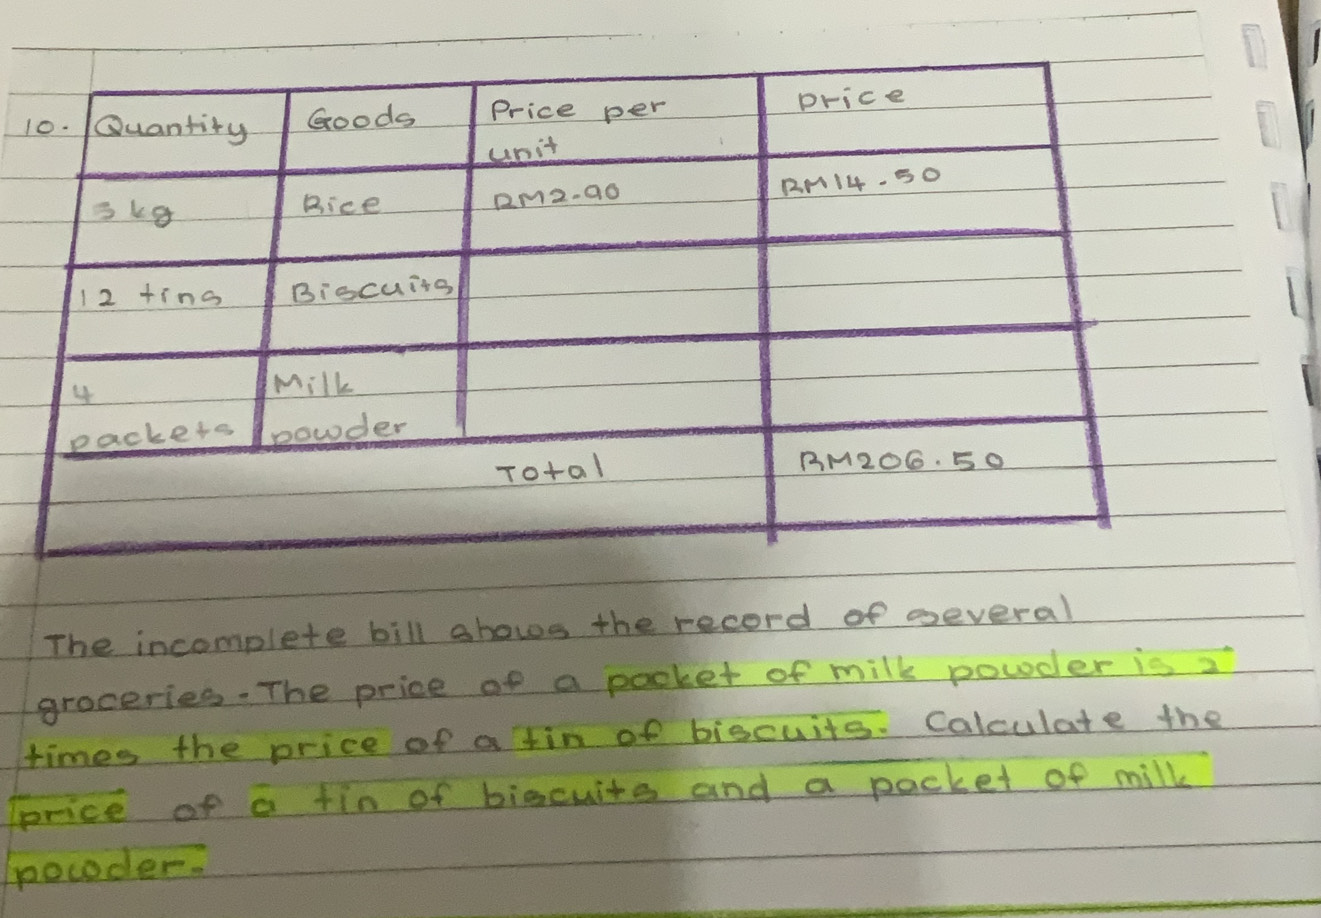 10. Quantity Goods Price per unit price
3 kg Rice RM2.90 RM14.50
12 tins Biscuits
4 packets Milk powder
Total RM206.50
The incomplete bill shows the record of several
groceries. The price of a packet of milk powder is 2
times the price of a tin of biscuits. Calculate the
price of a tin of biscuits and a packet of milk
powder.